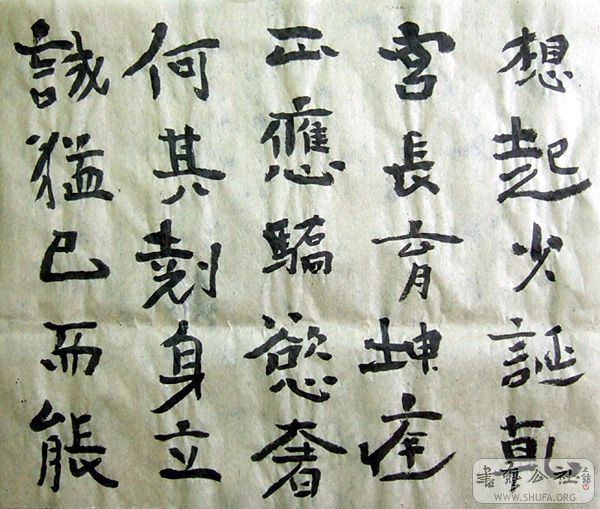 想起少誕乾
宮長育坤庭
正應驕慾奢
何其剋身立
誠猛已而能
書藝公社
WWW.SHUFA.ORG